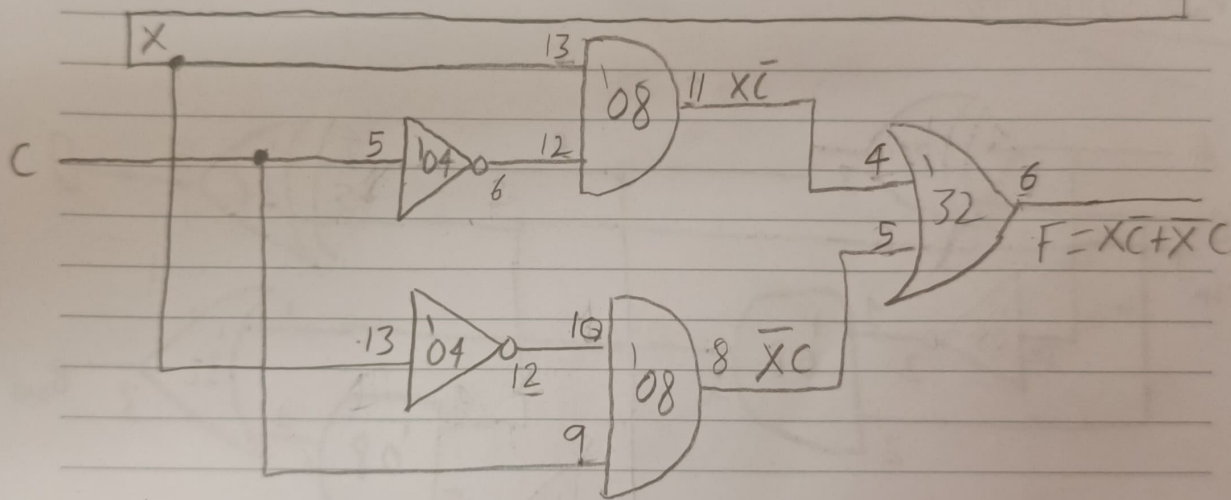 X
13
'08
11 XC̅
C
5
'04
6
12
4
5
'32
6
F=XC̅+X̅C
13
'04
12
10
9
'08
8 X̅C